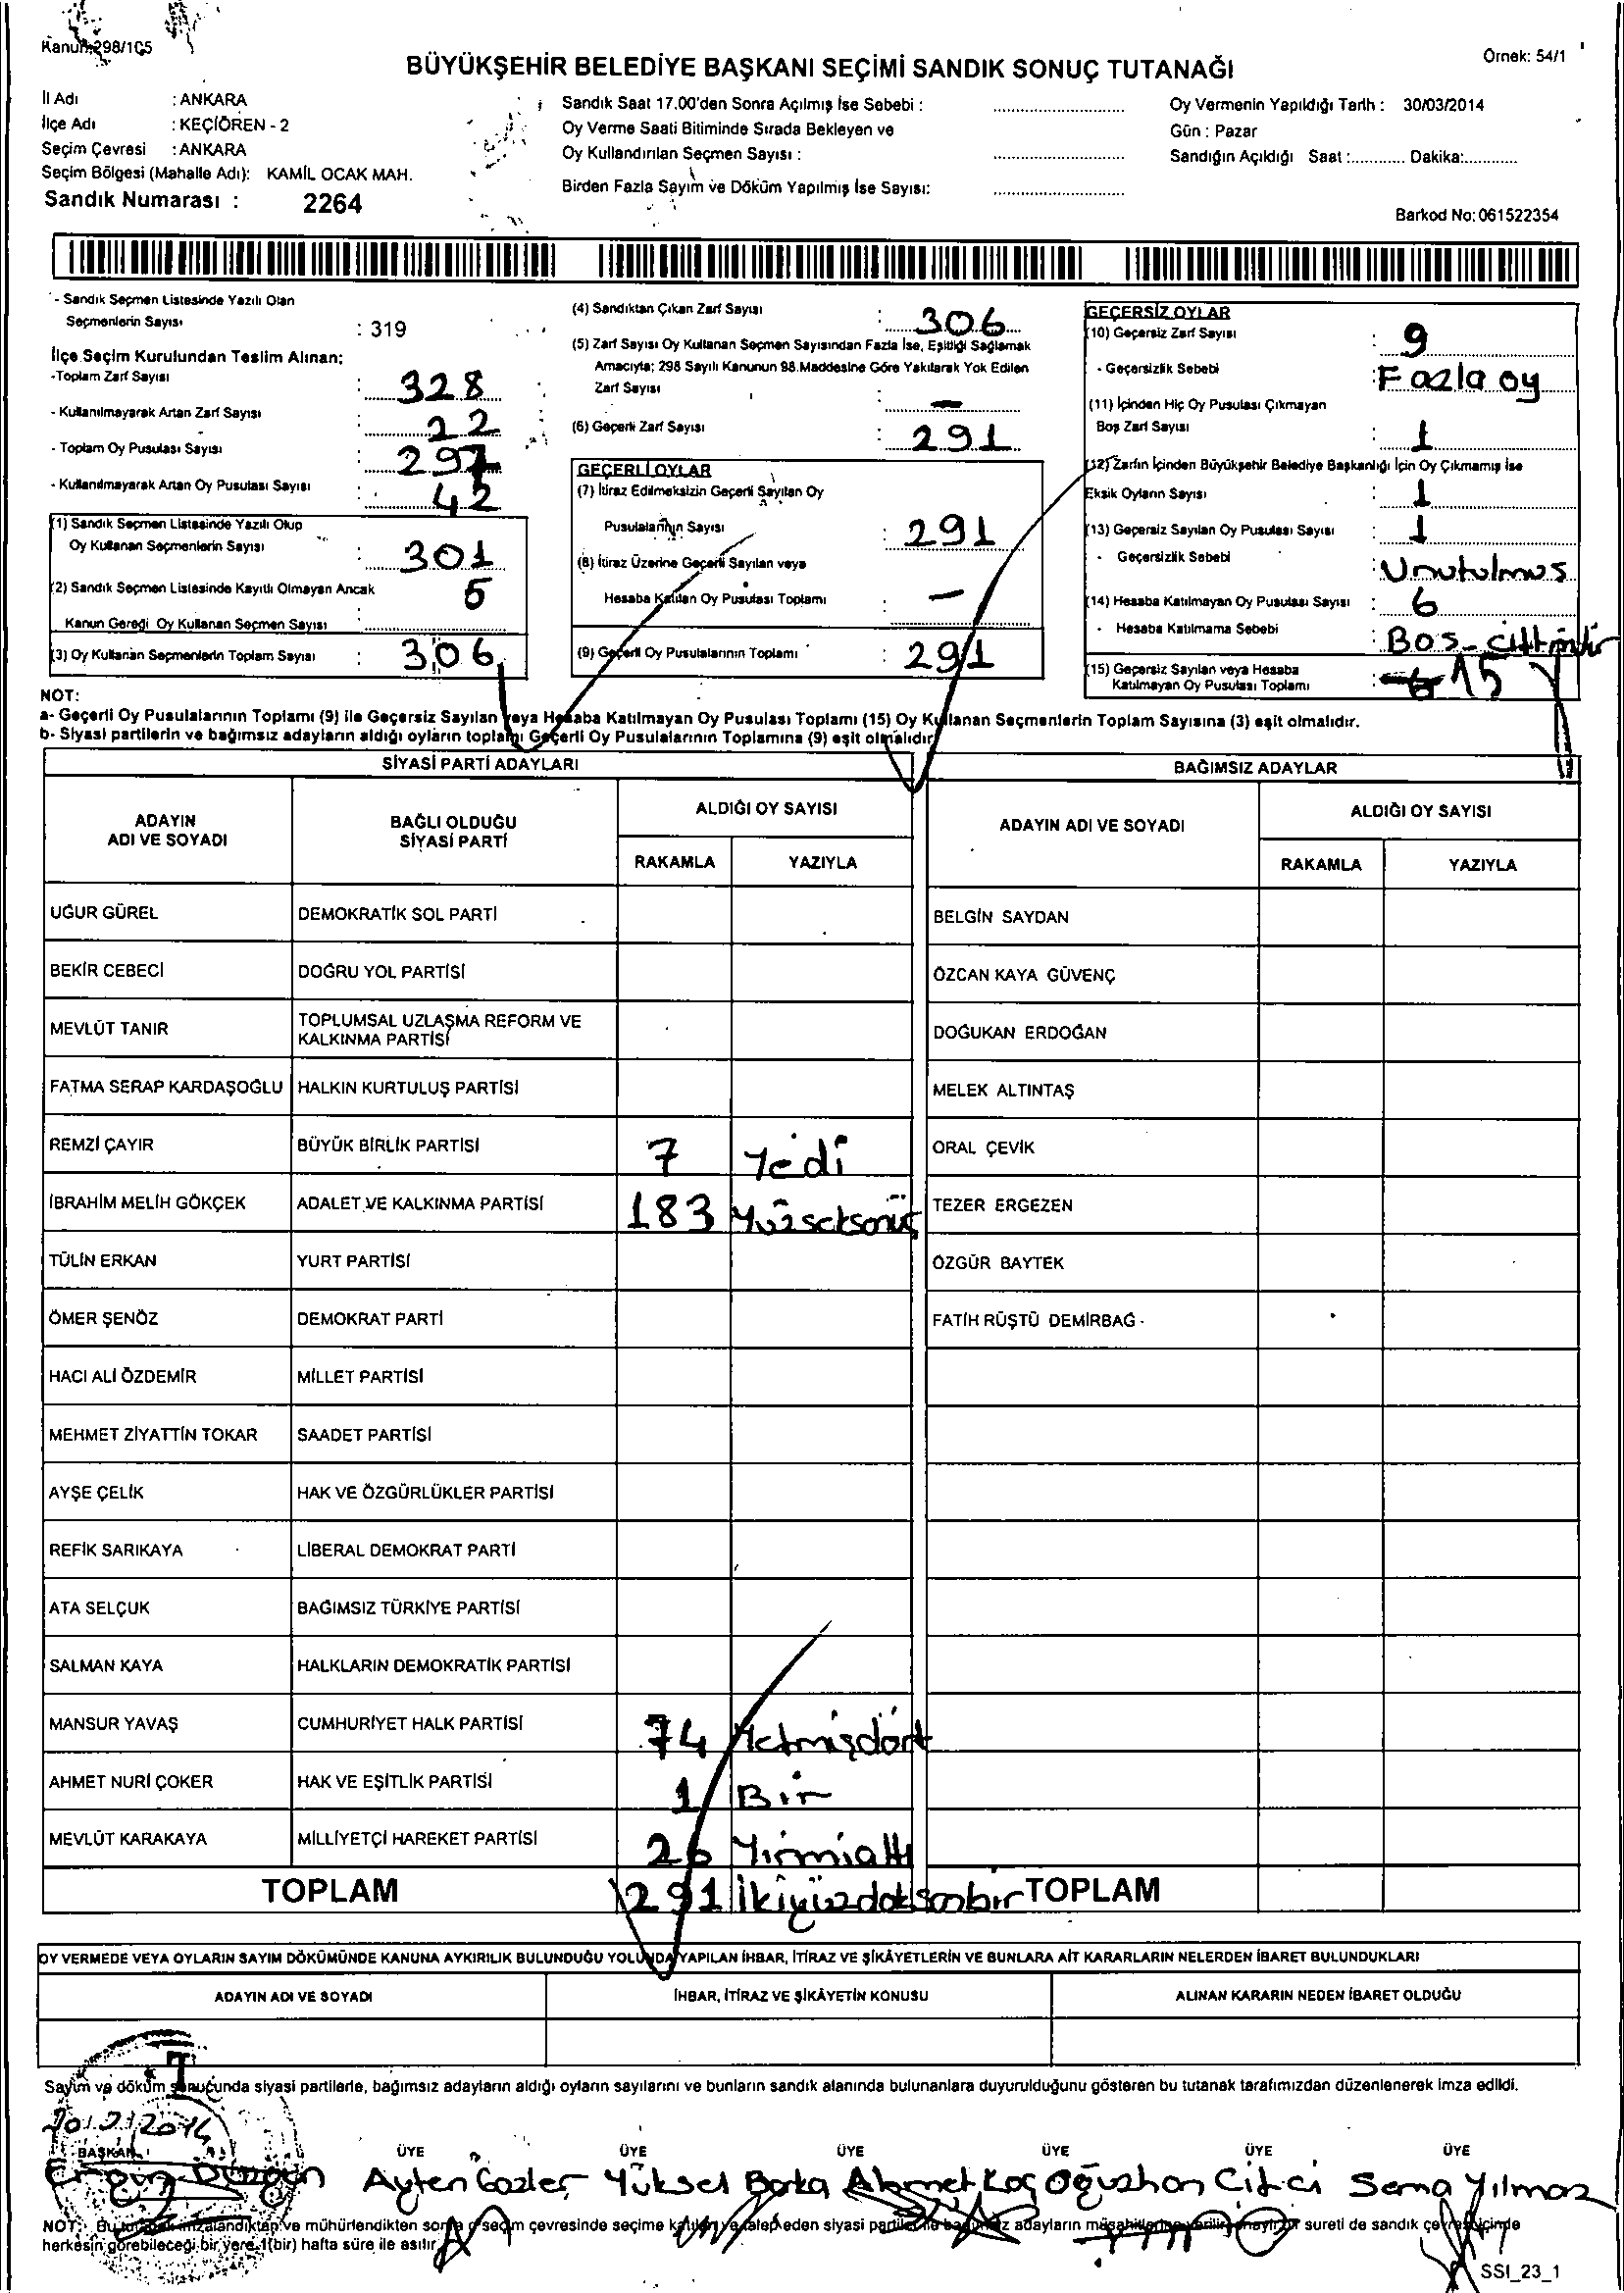 Kanun 298/105
Örnek: 54/1
BÜYÜKŞEHİR BELEDİYE BAŞKANI SEÇİMİ SANDIK SONUÇ TUTANAĞI
İl Adı : ANKARA
İlçe Adı : KEÇİÖREN - 2
Seçim Çevresi : ANKARA
Seçim Bölgesi (Mahalle Adı): KAMİL OCAK MAH.
Sandık Numarası : 2264
Sandık Saat 17.00'den Sonra Açılmış İse Sebebi :
Oy Verme Saati Bitiminde Sırada Bekleyen ve
Oy Kullandırılan Seçmen Sayısı :
Birden Fazla Sayım ve Döküm Yapılmış İse Sayısı:
Oy Vermenin Yapıldığı Tarih : 30/03/2014
Gün : Pazar
Sandığın Açıldığı Saat :............ Dakika:............
Barkod No: 061522354
- Sandık Seçmen Listesinde Yazılı Olan
Seçmenlerin Sayısı : 319
İlçe Seçim Kurulundan Teslim Alınan;
-Toplam Zarf Sayısı : 328
- Kullanılmayarak Artan Zarf Sayısı : 22
- Toplam Oy Pusulası Sayısı : 297
- Kullanılmayarak Artan Oy Pusulası Sayısı : 42
(1) Sandık Seçmen Listesinde Yazılı Olup
Oy Kullanan Seçmenlerin Sayısı : 301
(2) Sandık Seçmen Listesinde Kayıtlı Olmayan Ancak
Kanun Gereği Oy Kullanan Seçmen Sayısı : 5
(3) Oy Kullanan Seçmenlerin Toplam Sayısı : 306
(4) Sandıktan Çıkan Zarf Sayısı : 306
(5) Zarf Sayısı Oy Kullanan Seçmen Sayısından Fazla İse, Eşitliği Sağlamak
Amacıyla; 298 Sayılı Kanunun 98.Maddesine Göre Yakılarak Yok Edilen
Zarf Sayısı : -
(6) Geçerli Zarf Sayısı : 291
GEÇERLİ OYLAR
(7) İtiraz Edilmeksizin Geçerli Sayılan Oy
Pusulalarının Sayısı : 291
(8) İtiraz Üzerine Geçerli Sayılan veya
Hesaba Katılan Oy Pusulası Toplamı : -
(9) Geçerli Oy Pusulalarının Toplamı : 291
GEÇERSİZ OYLAR
(10) Geçersiz Zarf Sayısı : 9
- Geçersizlik Sebebi : Fazla oy
(11) İçinden Hiç Oy Pusulası Çıkmayan
Boş Zarf Sayısı : 1
(12) Zarfın İçinden Büyükşehir Belediye Başkanlığı İçin Oy Çıkmamış İse
Eksik Oyların Sayısı : 1
(13) Geçersiz Sayılan Oy Pusulası Sayısı : 1
- Geçersizlik Sebebi : Unutulmus
(14) Hesaba Katılmayan Oy Pusulası Sayısı : 6
- Hesaba Katılmama Sebebi : Bos-
(15) Geçersiz Sayılan veya Hesaba
Katılmayan Oy Pusulası Toplamı : 6 15
NOT:
a- Geçerli Oy Pusulalarının Toplamı (9) ile Geçersiz Sayılan veya Hesaba Katılmayan Oy Pusulası Toplamı (15) Oy Kullanan Seçmenlerin Toplam Sayısına (3) eşit olmalıdır.
b- Siyasi partilerin ve bağımsız adayların aldığı oyların toplamı Geçerli Oy Pusulalarının Toplamına (9) eşit olmalıdır.
SİYASİ PARTİ ADAYLARI
ADAYIN ADI VE SOYADI BAĞLI OLDUĞU SİYASİ PARTİ ALDIĞI OY SAYISI
RAKAMLA YAZIYLA
UĞUR GÜREL DEMOKRATİK SOL PARTİ
BEKİR CEBECİ DOĞRU YOL PARTİSİ
MEVLÜT TANIR TOPLUMSAL UZLAŞMA REFORM VE KALKINMA PARTİSİ
FATMA SERAP KARDAŞOĞLU HALKIN KURTULUŞ PARTİSİ
REMZİ ÇAYIR BÜYÜK BİRLİK PARTİSİ 7 Yedi
İBRAHİM MELİH GÖKÇEK ADALET VE KALKINMA PARTİSİ 183 Yüzseksenüç
TÜLİN ERKAN YURT PARTİSİ
ÖMER ŞENÖZ DEMOKRAT PARTİ
HACI ALİ ÖZDEMİR MİLLET PARTİSİ
MEHMET ZİYATTİN TOKAR SAADET PARTİSİ
AYŞE ÇELİK HAK VE ÖZGÜRLÜKLER PARTİSİ
REFİK SARIKAYA LİBERAL DEMOKRAT PARTİ
ATA SELÇUK BAĞIMSIZ TÜRKİYE PARTİSİ
SALMAN KAYA HALKLARIN DEMOKRATİK PARTİSİ
MANSUR YAVAŞ CUMHURİYET HALK PARTİSİ 74 Yetmişdört
AHMET NURİ ÇOKER HAK VE EŞİTLİK PARTİSİ 1 Bir
MEVLÜT KARAKAYA MİLLİYETÇİ HAREKET PARTİSİ 26 Yirmialtı
TOPLAM 291 İkiyüzdoksanbir
BAĞIMSIZ ADAYLAR
ADAYIN ADI VE SOYADI ALDIĞI OY SAYISI
RAKAMLA YAZIYLA
BELGİN SAYDAN
ÖZCAN KAYA GÜVENÇ
DOĞUKAN ERDOĞAN
MELEK ALTINTAŞ
ORAL ÇEVİK
TEZER ERGEZEN
ÖZGÜR BAYTEK
FATİH RÜŞTÜ DEMİRBAĞ
TOPLAM
OY VERMEDE VEYA OYLARIN SAYIM DÖKÜMÜNDE KANUNA AYKIRILIK BULUNDUĞU YOLUNDA YAPILAN İHBAR, İTİRAZ VE ŞİKÂYETLERİN VE BUNLARA AİT KARARLARIN NELERDEN İBARET BULUNDUKLARI
ADAYIN ADI VE SOYADI İHBAR, İTİRAZ VE ŞİKÂYETİN KONUSU ALINAN KARARIN NEDEN İBARET OLDUĞU
Sayım ve döküm sonucunda siyasi partilerle, bağımsız adayların aldığı oyların sayılarını ve bunların sandık alanında bulunanlara duyurulduğunu gösteren bu tutanak tarafımızdan düzenlenerek imza edildi.
BAŞKAN ÜYE ÜYE ÜYE ÜYE ÜYE ÜYE
Ergün Ayten Gözler Yüksel Ahmet Koç Oğuzhan Çiftci Sema Yılmaz
NOT: Bu tutanak imzalandıktan ve mühürlendikten sonra o seçim çevresinde seçime katılan ve talep eden siyasi partiler ile bağımsız adayların müşahitlerine verilir onaylı bir sureti de sandık çevresi içinde
herkesin görebileceği bir yere 1(bir) hafta süre ile asılır.
SSI_23_1